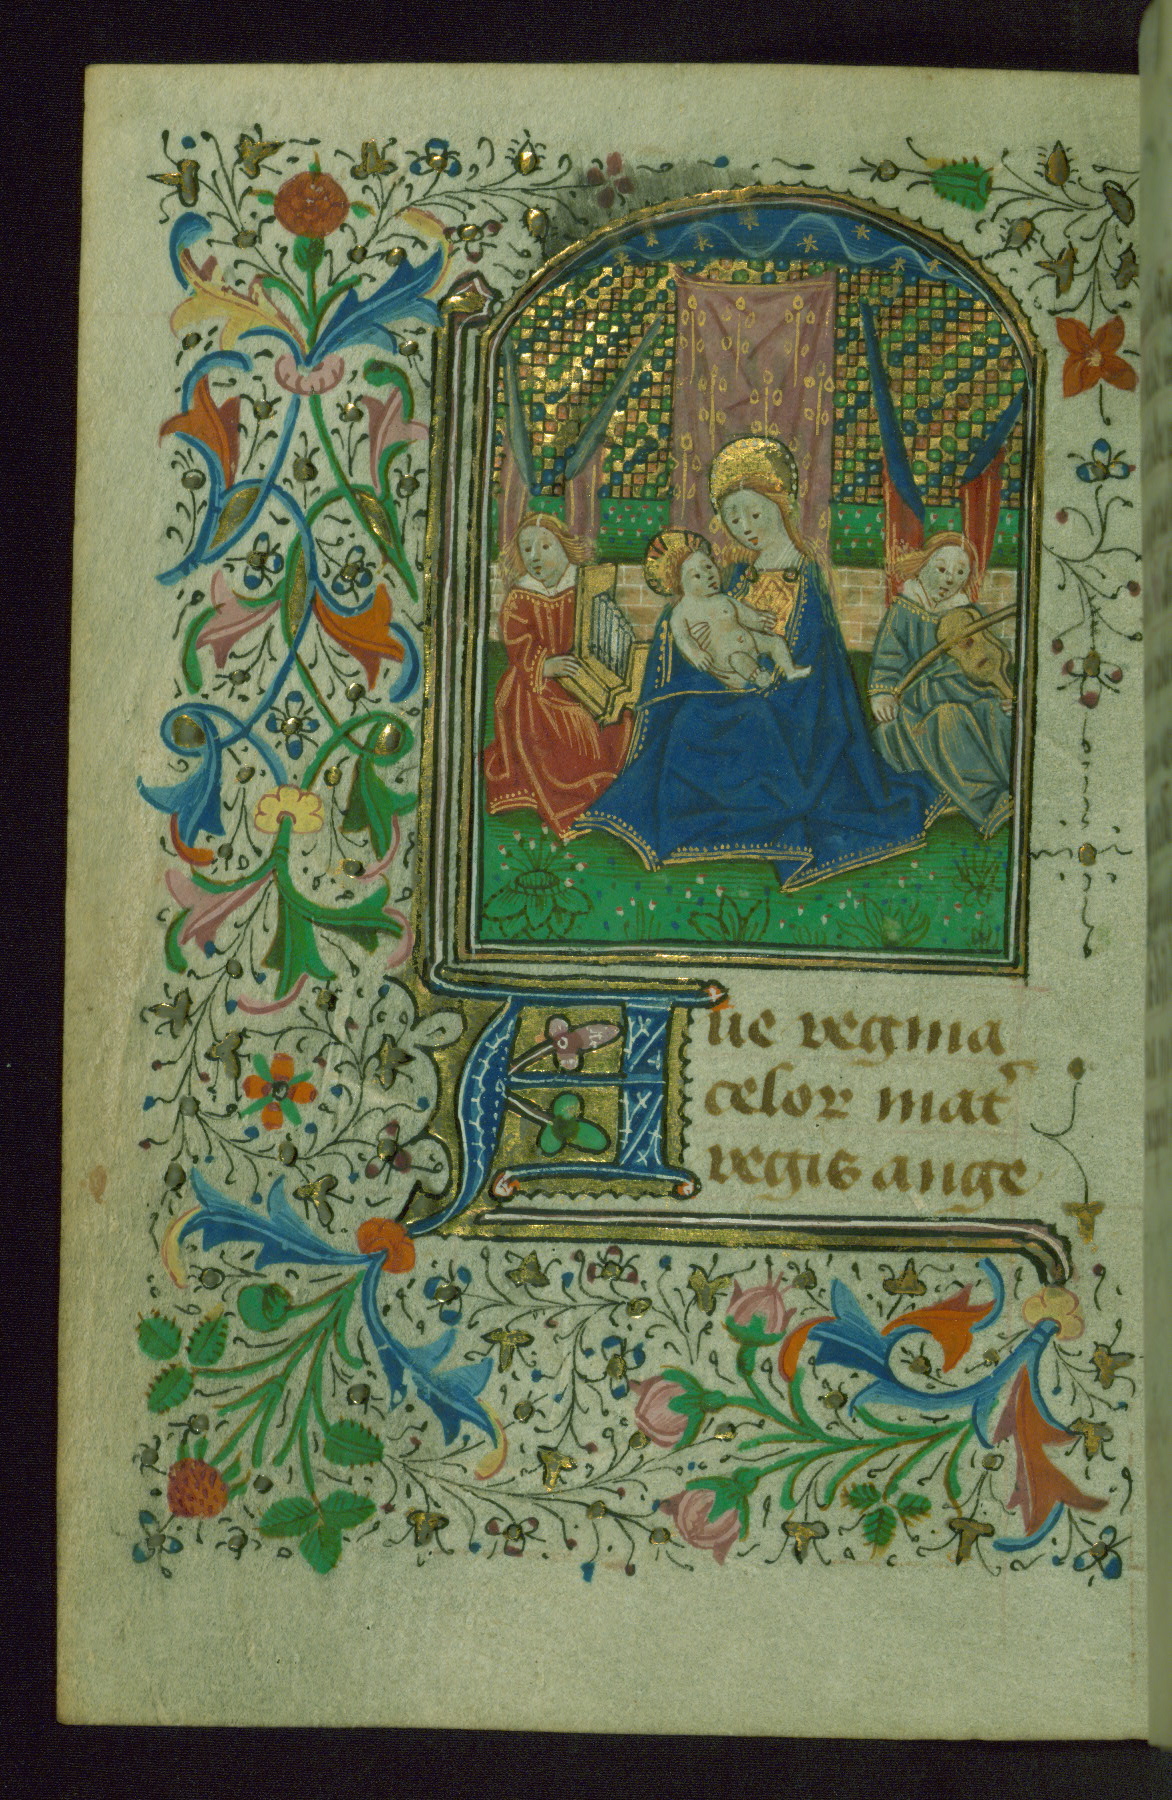 Aue regina
celor mat᷒
regis ange